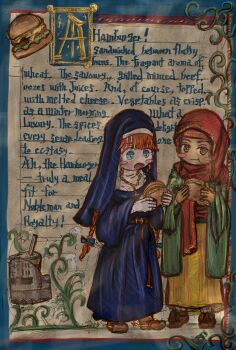 A
Hamburger!
Sandwiched between fluffy
buns. The fragrant aroma of
wheat. The savoury, grilled minced beef,
oozes with juices. And, of course, topped
with melted cheese. Vegetables as crisp
as a winter morning. What a
luxury. The spices delight
every sense leading one
to ecstasy.
Ah, the Hamburger
truly a meal
fit for
Nobleman and
Royalty!